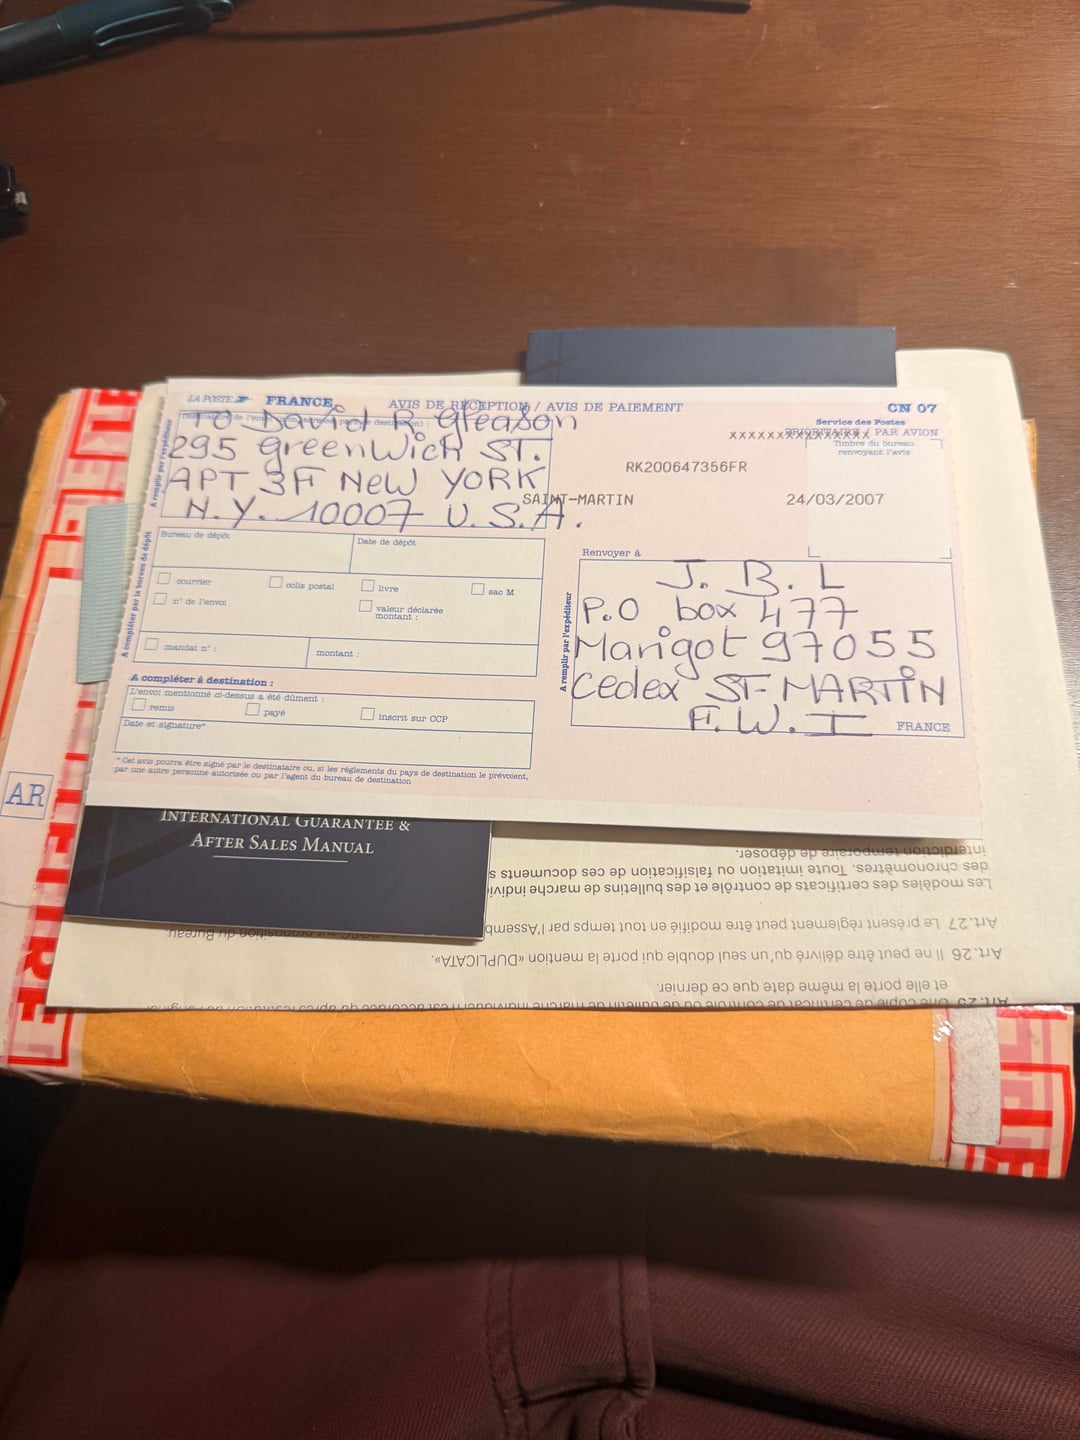 LA POSTE FRANCE AVIS DE RÉCEPTION / AVIS DE PAIEMENT CN 07
Service des Postes
PRIORITAIRE / PAR AVION
xxxxxxxxxxxxxxxxxx
Timbre du bureau
renvoyant l'avis
A remplir par l'expéditeur
TO David R Gleason
295 greenWich ST.
APT 3F NeW YORK
N.Y. 10007 U.S.A.
RK200647356FR
SAINT-MARTIN 24/03/2007
A compléter par le bureau de dépôt
Bureau de dépôt
Date de dépôt
courrier
colis postal
livre
sac M
n° de l'envoi
valeur déclarée
montant :
mandat n° :
montant :
A compléter à destination :
L'envoi mentionné ci-dessus a été dûment :
remis
payé
inscrit sur CCP
Date et signature*
* Cet avis pourra être signé par le destinataire ou, si les règlements du pays de destination le prévoient,
par une autre personne autorisée ou par l'agent du bureau de destination
Renvoyer à
A remplir par l'expéditeur
J. B. L
P.O box 477
Marigot 97055
Cedex ST-MARTIN
F.W.I
FRANCE
AR
INTERNATIONAL GUARANTEE &
AFTER SALES MANUAL
et elle porte la même date que ce dernier.
Art. 26 Il ne peut être délivré qu'un seul double qui porte la mention «DUPLICATA».
Art. 27 Le présent règlement peut être modifié en tout temps par l'Assemb
Les modèles des certificats de contrôle et des bulletins de marche individ
des chronomètres. Toute imitation ou falsification de ces documents s
interdiction temporaire de déposer.